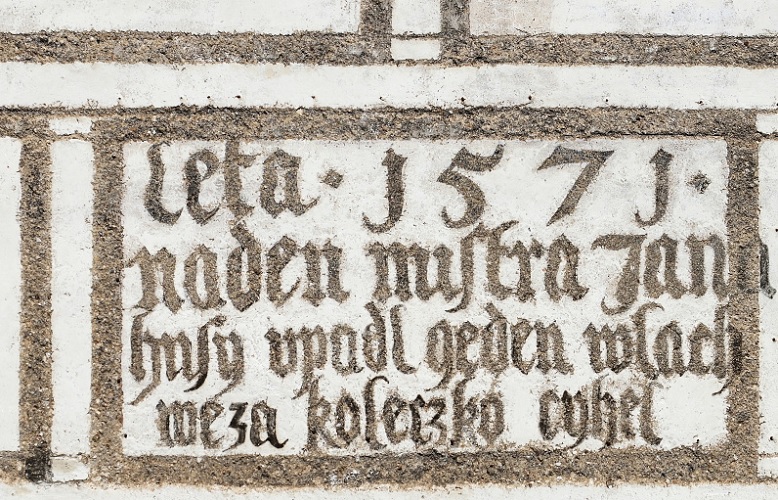 leta · 1571 ·
naden mistra Jana
husy vpadl geden wlach
weza koleczko cyhel